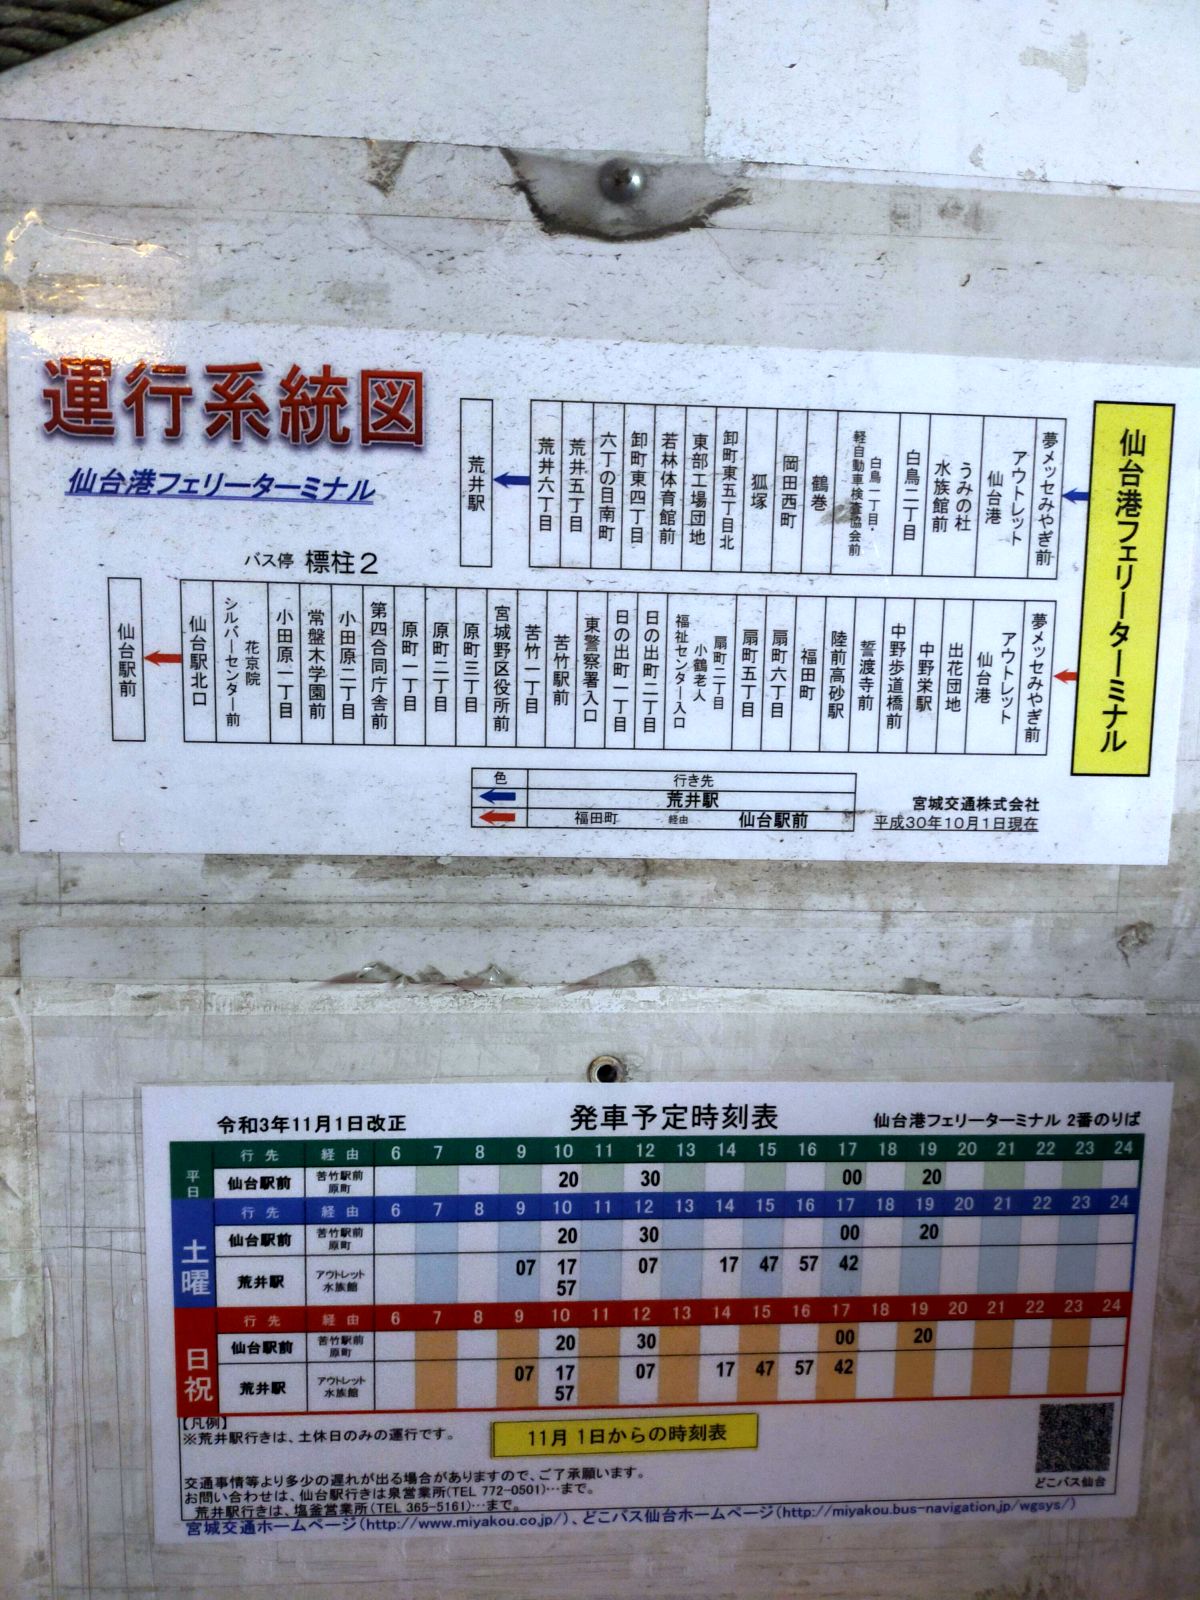 運行系統図
仙台港フェリーターミナル
バス停 標柱2
仙台港フェリーターミナル
夢メッセみやぎ前
仙台港アウトレット
うみの杜水族館前
白鳥二丁目
白鳥一丁目・軽自動車検査協会前
鶴巻
岡田西町
狐塚
卸町東五丁目北
東部工場団地
若林体育館前
卸町東四丁目
六丁の目南町
荒井五丁目
荒井六丁目
荒井駅
夢メッセみやぎ前
仙台港アウトレット
出花団地
中野栄駅
中野歩道橋前
誓渡寺前
陸前高砂駅
福田町
扇町六丁目
扇町五丁目
扇町二丁目
小鶴老人福祉センター入口
日の出町二丁目
日の出町一丁目
東警察署入口
苦竹駅前
苦竹一丁目
宮城野区役所前
原町三丁目
原町二丁目
原町一丁目
第四合同庁舎前
小田原二丁目
常盤木学園前
小田原一丁目
花京院シルバーセンター前
仙台駅北口
仙台駅前
色 行き先
荒井駅
福田町 経由 仙台駅前
宮城交通株式会社
平成30年10月1日現在
令和3年11月1日改正 発車予定時刻表 仙台港フェリーターミナル 2番のりば
平日 行先 経由 6 7 8 9 10 11 12 13 14 15 16 17 18 19 20 21 22 23 24
仙台駅前 苦竹駅前 原町 20 30 00 20
土曜 行先 経由 6 7 8 9 10 11 12 13 14 15 16 17 18 19 20 21 22 23 24
仙台駅前 苦竹駅前 原町 20 30 00 20
荒井駅 アウトレット 水族館 07 17 07 17 47 57 42
57
日祝 行先 経由 6 7 8 9 10 11 12 13 14 15 16 17 18 19 20 21 22 23 24
仙台駅前 苦竹駅前 原町 20 30 00 20
荒井駅 アウトレット 水族館 07 17 07 17 47 57 42
57
【凡例】
※荒井駅行きは、土休日のみの運行です。
11月 1日からの時刻表
交通事情等より多少の遅れが出る場合がありますので、ご了承願います。
お問い合わせは、仙台駅行きは泉営業所(TEL 772-0501)…まで。
荒井駅行きは、塩釜営業所(TEL 365-5161)…まで。
どこバス仙台
宮城交通ホームページ(http://www.miyakou.co.jp/)、どこバス仙台ホームページ(http://miyakou.bus-navigation.jp/wgsys/)